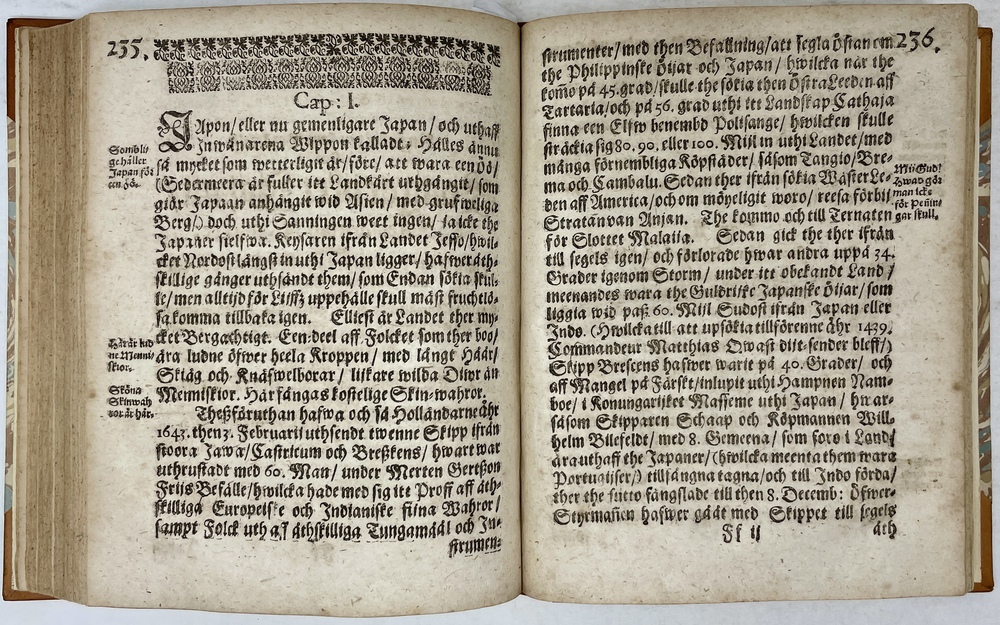 235.
Cap: I.
JApon/ eller nu gemenligare Japan/ och uthaff
Inwånarena Wippon kalladt. Hålles ännu
så mycket som wetterligit är/ före/ att wara een öö/
(Sedermeera är fuller itt Landkårt uthgångit/ som
giör Japaan anhängit wid Asien/ med grufweliga
Berg/) doch uthi Sanningen weet ingen/ ja icke the
Japaner sielfwa. Keysaren ifrån Landet Jeffo/ hwil-
cket Nordost längst in uthi Japan ligger/ hafwer åth-
skillige gånger uthsändt them/ som Endan sökia skul-
le/ men alltijd för Lijffz uppehälle skull måst fruchtlö-
sa komma tillbaka igen. Elliest är Landet ther my-
cket Bergachtigt. Een deel aff Folcket som ther boo/
ära ludne öfwer heela Kroppen/ med långt Håår/
Skiäg och Knäfwelborar/ lijkare wilda Diur än
Menniskior. Här fångas kostelige Skin-wahror.
Theßföruthan hafwa och så Holländarne åhr
1643. then 3. Februarii uthsendt twenne Skipp ifrån
stoora Jawa/ Castricum och Breßkens/ hwart war
uthrustadt med 60. Man/ under Merten Gertßon
Frijs Befälle/ hwilcka hade med sig itt Proff aff åth-
skilliga Europeiske och Indianiske fijna Wahror/
sampt Folck uth aff åthskilliga Tungamåål och In-
strumen-
Sombli-
ge håller
Japan för
een öö.
Här är lud
ne Menni-
skior.
Sköna
Skinwah
ror är här.
236.
strumenter/ med then Befallning/ att segla östan om
the Philippinske öijar och Japan/ hwilcka när the
komo på 45. grad/ skulle the sökia then östra Leeden aff
Tartaria/ och på 56. grad uthi itt Landskap Cathaja
finna een Elfw benembd Polisange/ hwilcken skulle
sträckia sig 80. 90. eller 100. Mijl in uthi Landet/ med
många förnembliga Köpstäder/ såsom Tangio/ Bre-
ma och Cambalu. Sedan ther ifrån sökia Wäster Le-
den aff America/ och om möyeligit woro/ reesa förbij
Stratan van Anjan. The kommo och till Ternaten
för Slottet Malaija. Sedan gick the ther ifrån
till segels igen/ och förlorade hwar andra uppå 34.
Grader igenom Storm/ under itt obekande Land/
meenandes wara the Guldrijke Japanske öijar/ som
liggia wid paß 60. Mijl Sudost ifrån Japan eller
Indo. (Hwilcka till att upsökia tillförenne åhr 1439.
Commandeur Matthias Qwast dijt sender bleff/)
Skipp Brescens hafwer warit på 40. Grader/ och
aff Mangel på Färskt/ inlupit uthi Hampnen Nam-
boe/ i Konungarijket Maffeme uthi Japan/ hwar-
såsom Skipparen Schaap och Köpmannen Will-
helm Bilefeldt/ med 8. Gemeena/ som foro i Land/
ära uthaff the Japaner/ (hwilcka meenta them wara
Portugijser/) tillfångna tagna/ och till Indo förda/
ther the sutto fängslade till then 8. Decemb: Öfwer-
Styrmañen hafwer gåât med Skippet till segels
Ff ij
åth
Mij Gud!
Hwad gör
man icke
för Peñin-
gar skull.